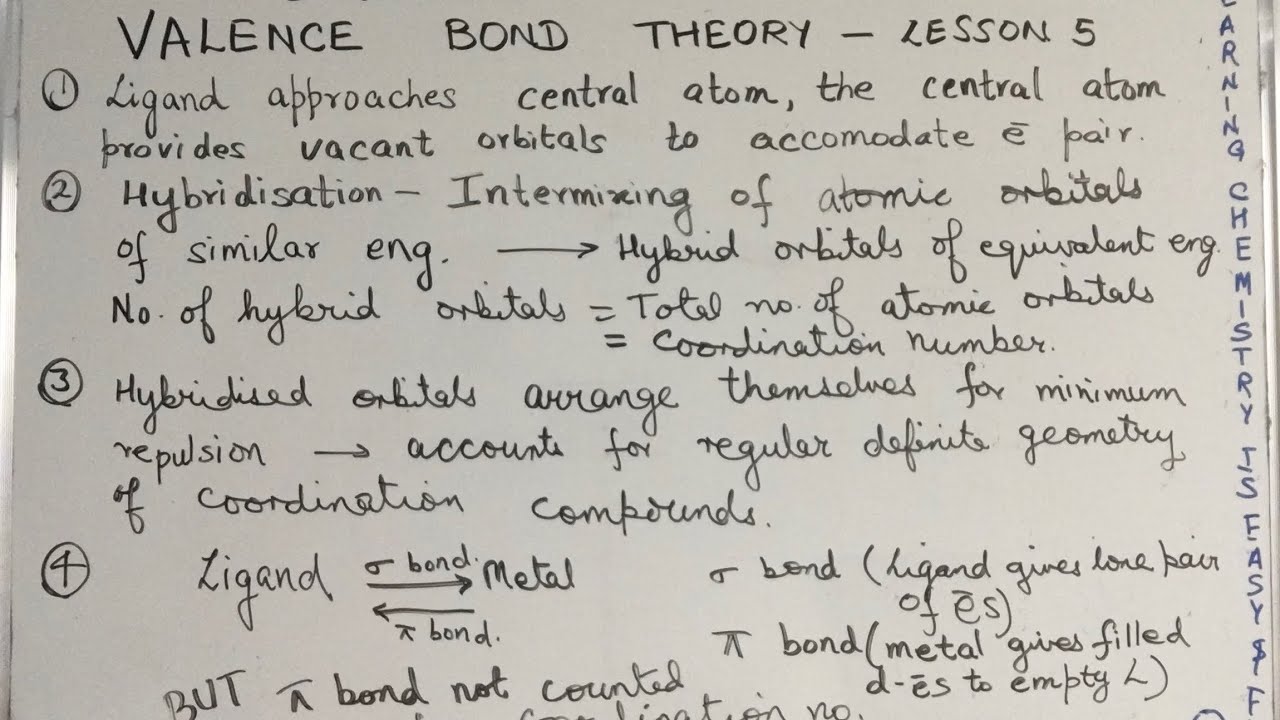 VALENCE BOND THEORY – LESSON 5
① Ligand approaches central atom, the central atom
provides vacant orbitals to accomodate ē pair.
② Hybridisation – Intermixing of atomic orbitals
of similar eng. ⟶ Hybrid orbitals of equivalent eng.
No. of hybrid orbitals = Total no. of atomic orbitals
= Coordination number.
③ Hybridised orbitals arrange themselves for minimum
repulsion → accounts for regular definite geometry
of coordination compounds.
④ Ligand σ bond. ⟶ Metal σ bond (Ligand gives lone pair
of ēs)
⟵ π bond. π bond (metal gives filled
d-ēs to empty L)
BUT π bond not counted
no.
EARNING CHEMISTRY IS EASY & F